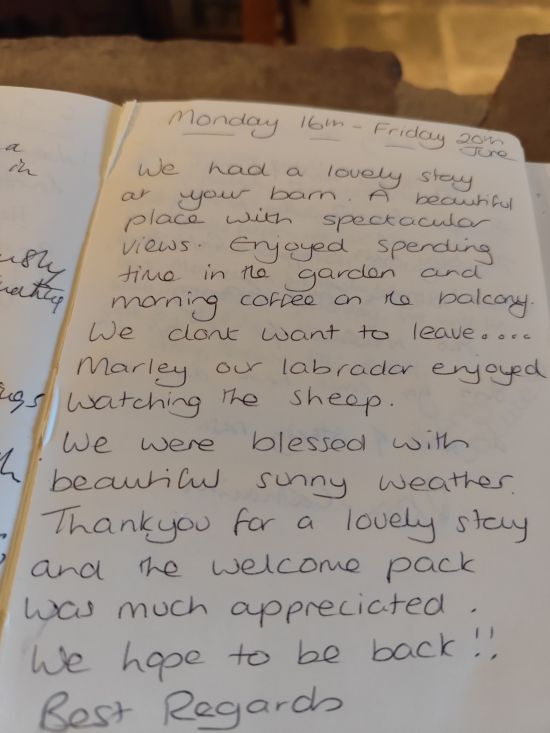 Monday 16th - Friday 20th June
We had a lovely stay
at your barn. A beautiful
place with spectacular
views. Enjoyed spending
time in the garden and
morning coffee on the balcony.
We dont want to leave....
Marley our labrador enjoyed
watching the sheep.
We were blessed with
beautiful sunny weather.
Thankyou for a lovely stay
and the welcome pack
was much appreciated.
We hope to be back!!
Best Regards